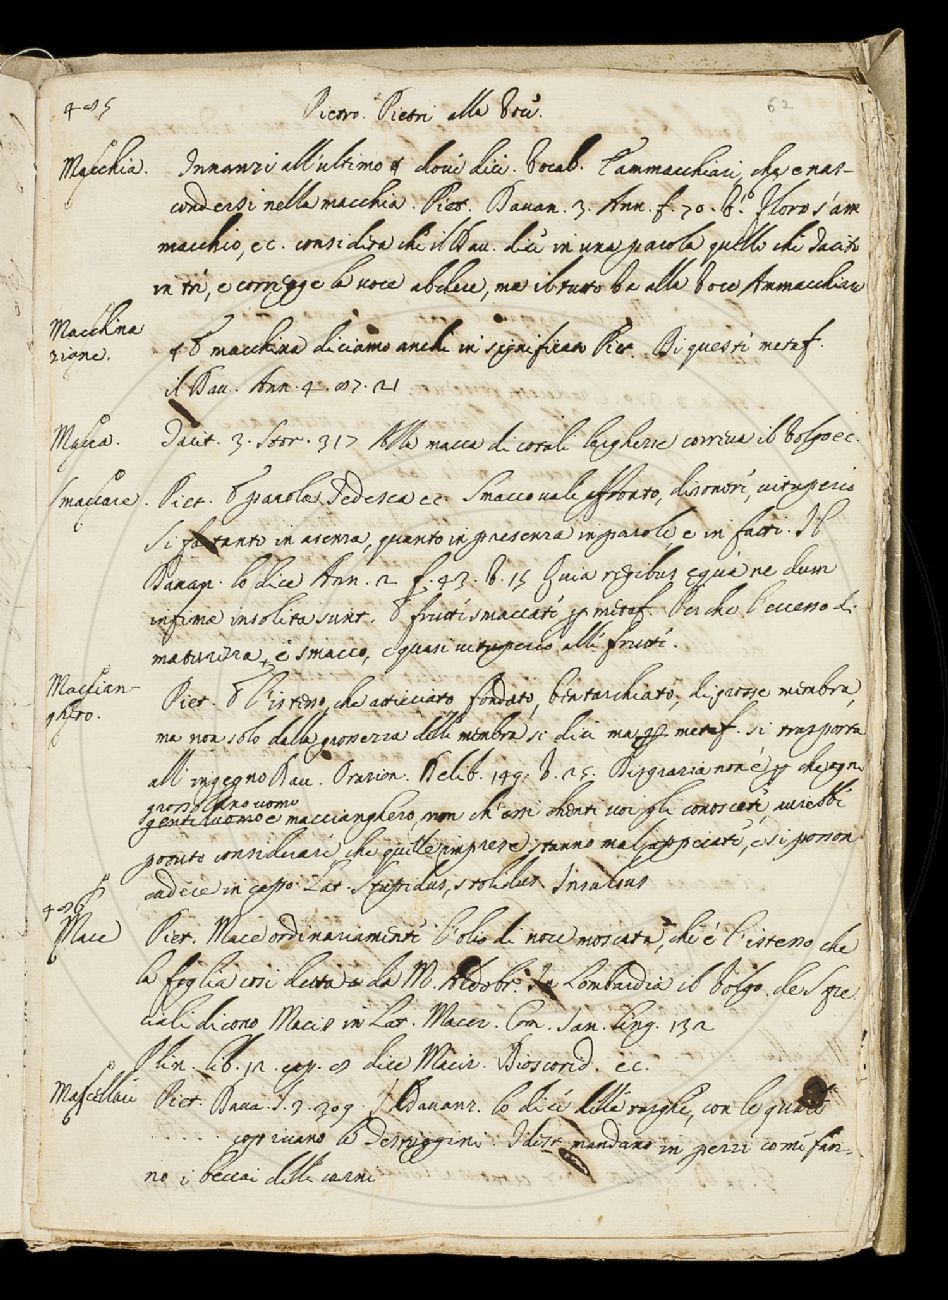 485 Pietro Pietri alla Voce 62
Macchia. Innanzi all'ultimo § dove dice Vocab. T'ammacchiari, che e nas-
condersi nella macchia. Piet. Davan. 3. Ann. f. 70. Floro s'am
macchiò, ec. considera che il Dav. dice in una parola quello che Tacito
in tre, e corregge la voce ma il tutto va alla Voce Ammacchiare
Macchina
zione. § V macchina diciamo anche in significato Piet. Di questi metaf.
il Dav. Ann. 4. 87. 21
Macca. Tacit. 3. Stor. 317 Alla macca di cotali largherie correva il Volgo ec.
Smaccare. Piet. V parola Tedesca ec Smacco vale affronto, disonore, vituperio
si fa tanto in asenza, quanto in presenza in parole, e in fatti. Il
Davan. lo dice Ann. 2 f. 43. V. 15 Quia regibus ne dum
infima insolita sunt. V frutti smaccati metaf. Perche l'ecceso di
maturezza, è smacco, e quasi vituperio alle frutti.
Maccian-
ghero. Piet. V l'istesso, che atticciato, fondato, bentarchiato, di grosse membra,
ma non solo della grossezza delle membra si dice ma metaf. si trasporta
all'ingegno Dav. Orazion. Delib. 149. V. 25. Disgrazia non è che ogni
grossolano uomo
gentiluomo e macciangherò, non ch'essi voi gli conoscete avrebbe
potuto considerare che quelle imprese stanno mal appiccate, e si posson
cadere in capo. Lat. Stupidus, stolidus. Insulsus
486
Mace Piet. Mace ordinariamente l'olio di noce moscata, che è l'istesso che
la foglia così detta da M. Aldobr. In Lombardia il Volgo de Spe
ciali dicono Macis in Lat. Macer. Com. Ian. Ling. 132
Plin. lib. 12. cap. 8 dice Macir. Dioscorid. ec.
Macellaii Piet. Dava. 309. Il Davanz. lo dice delle raschie, con le quali
coprivano le mandano in pezzi come fan-
no i beccai delle carni